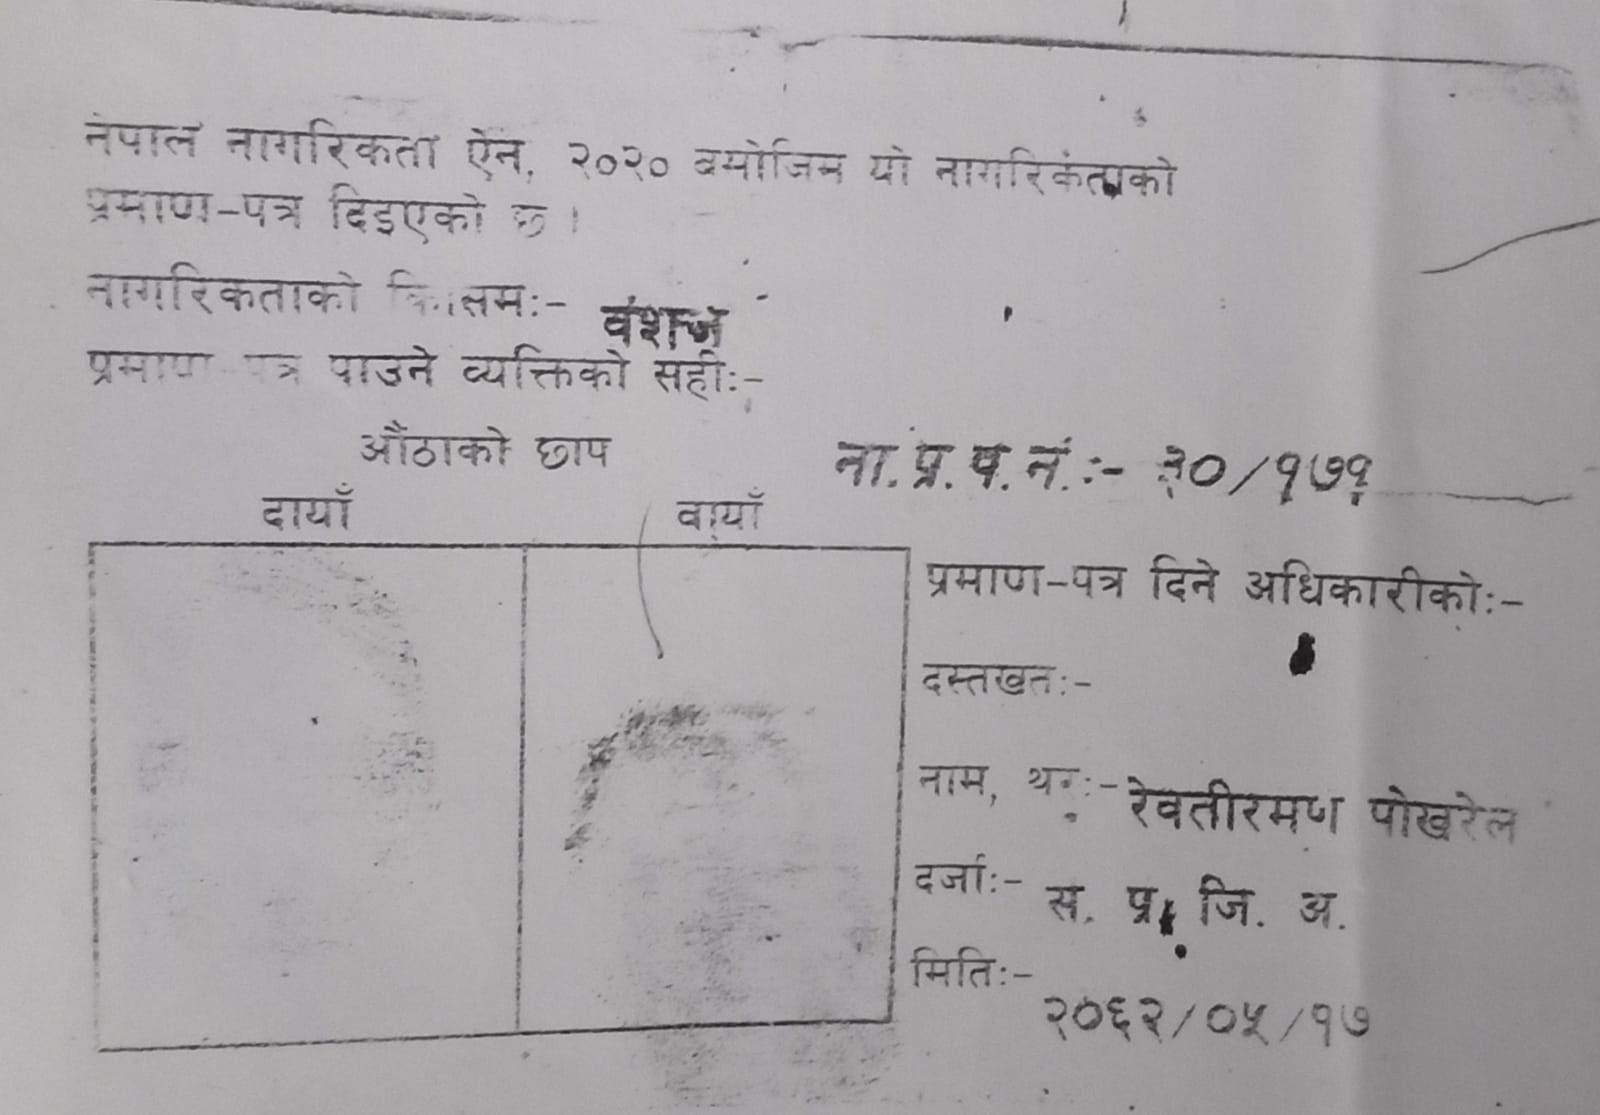 नेपाल नागरिकता ऐन, २०२० बमोजिम यो नागरिकताको
प्रमाण-पत्र दिइएको छ ।
नागरिकताको किसिमः- वंशज
प्रमाण पत्र पाउने व्यक्तिको सहीः-
औंठाको छाप
दायाँ वायाँ
ना. प्र. प. नं.:- २०/१७१
प्रमाण-पत्र दिने अधिकारीकोः-
दस्तखतः-
नाम, थरः- रेवतीरमण पोखरेल
दर्जाः- स. प्र. जि. अ.
मितिः- २०६२/०५/१७